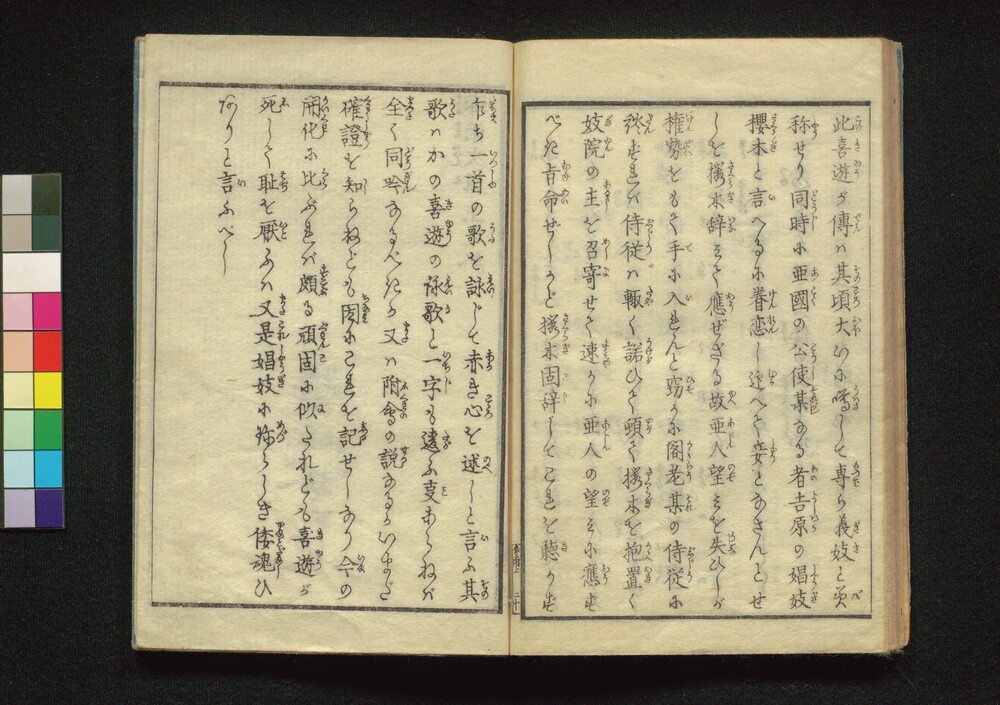 此喜遊が傳ハ其頃大いに噂して専ら義妓と賞
称せり同時に亜國の公使某なる者吉原の娼妓
櫻木と言へるに眷恋し迎へて妾となさんとせ
しを櫻木辞して應ぜざる故亜人望ミを失ひしが
権勢をもて手に入れんと竊かに閣老某の侍従に
れバ侍従ハ輙く諾ひて頭て櫻木を抱置く
妓院の主を召寄せて速かに亜人の望ミに應ず
べき旨命ぜしかど櫻木固辞してこれを聴かず
乍ち一首の歌を詠じて赤き心を述しと言ふ其
歌ハかの喜遊の詠歌と一字も違ふ事あらねバ
全く同吟なるべきか又ハ附會の説なるかいまだ
確證を知らねども因にこれを記せしなり今の
開化に比ぶれバ頗る頑固に似たれども喜遊が
死して耻を厭ふハ又是娼妓に珍らしき倭魂ひ
なりと言ふべし
二十